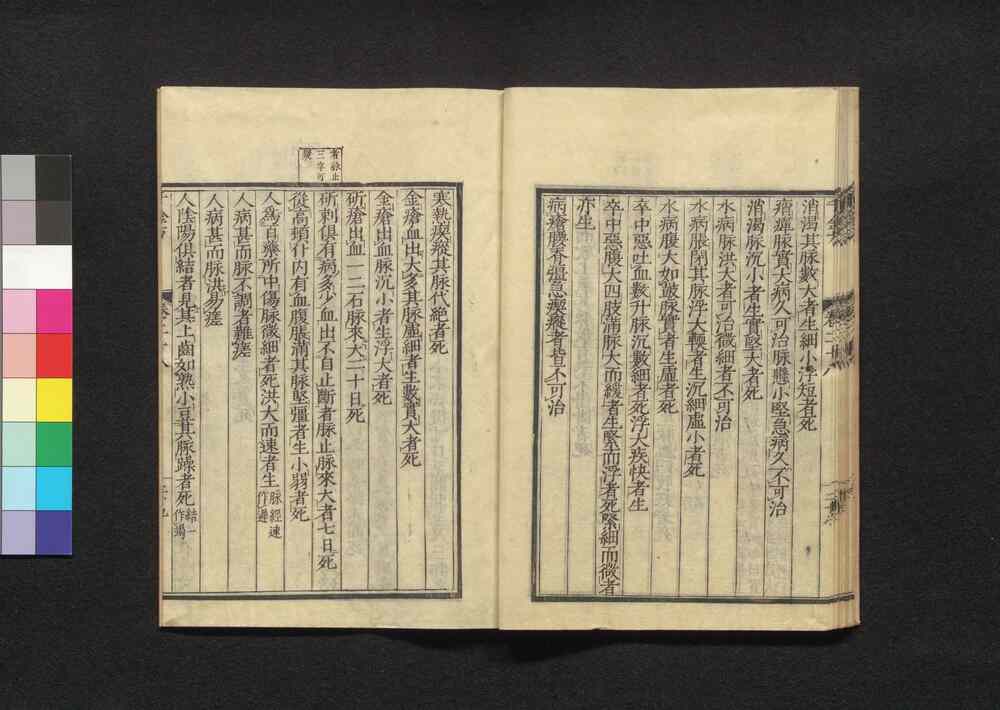 消渴其脉數大者生細小浮短者死
病久可治脉懸小堅急病久不可治
消渴脉沉小者生實堅大者死
水病脉洪大者可治微細者不可治
水病脹閉其脉浮大軟者生沉細虛小者死
水病腹大如皷脉實者生虛者死
卒中惡吐血數升脉沉數細者死浮大疾快者生
卒中惡腹大四肢滿脉大而緩者生緊而浮者死緊細而微者
亦生
病瘡腰脊强急瘈瘲者皆不可治
寒熱瘈瘲其脉代絶者死
金瘡血出太多其脉虛細者生數實大者死
金瘡出血脉沉小者生浮大者死
斫瘡出血一二石脉來大二十日死
斫刺俱有病多少血出不自止斷者脉止脉來大者七日死
者脉止
三字可
從高頓仆内有血腹脹滿其脉堅彊者生小弱者死
人爲百藥所中傷脉微細者死洪大而速者生脉經速作遲
人病甚而脉不調者難瘥
人病甚而脉洪易瘥
人陰陽俱結者見其上齒如熟小豆其脉躁者死結一作竭